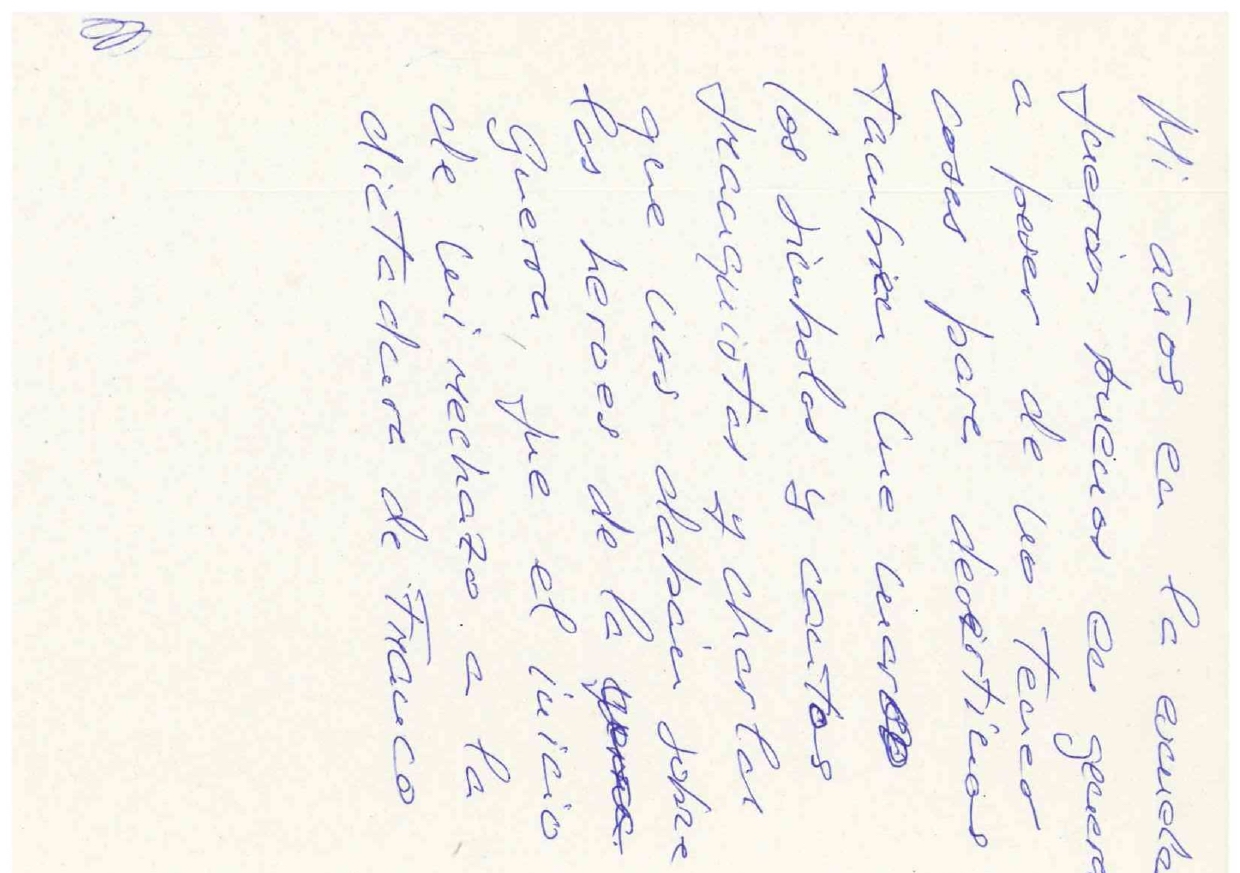 Mi años en la escuela
fueron buenos en genera
a peser de no tener
coses para devertirnos
tambien me marco
los simbolos y cantos
franquistas y charlas
que nos daban sobre
los heroes de la
Guerra, fue el inicio
de mi rechazo a la
dictadura de Franco